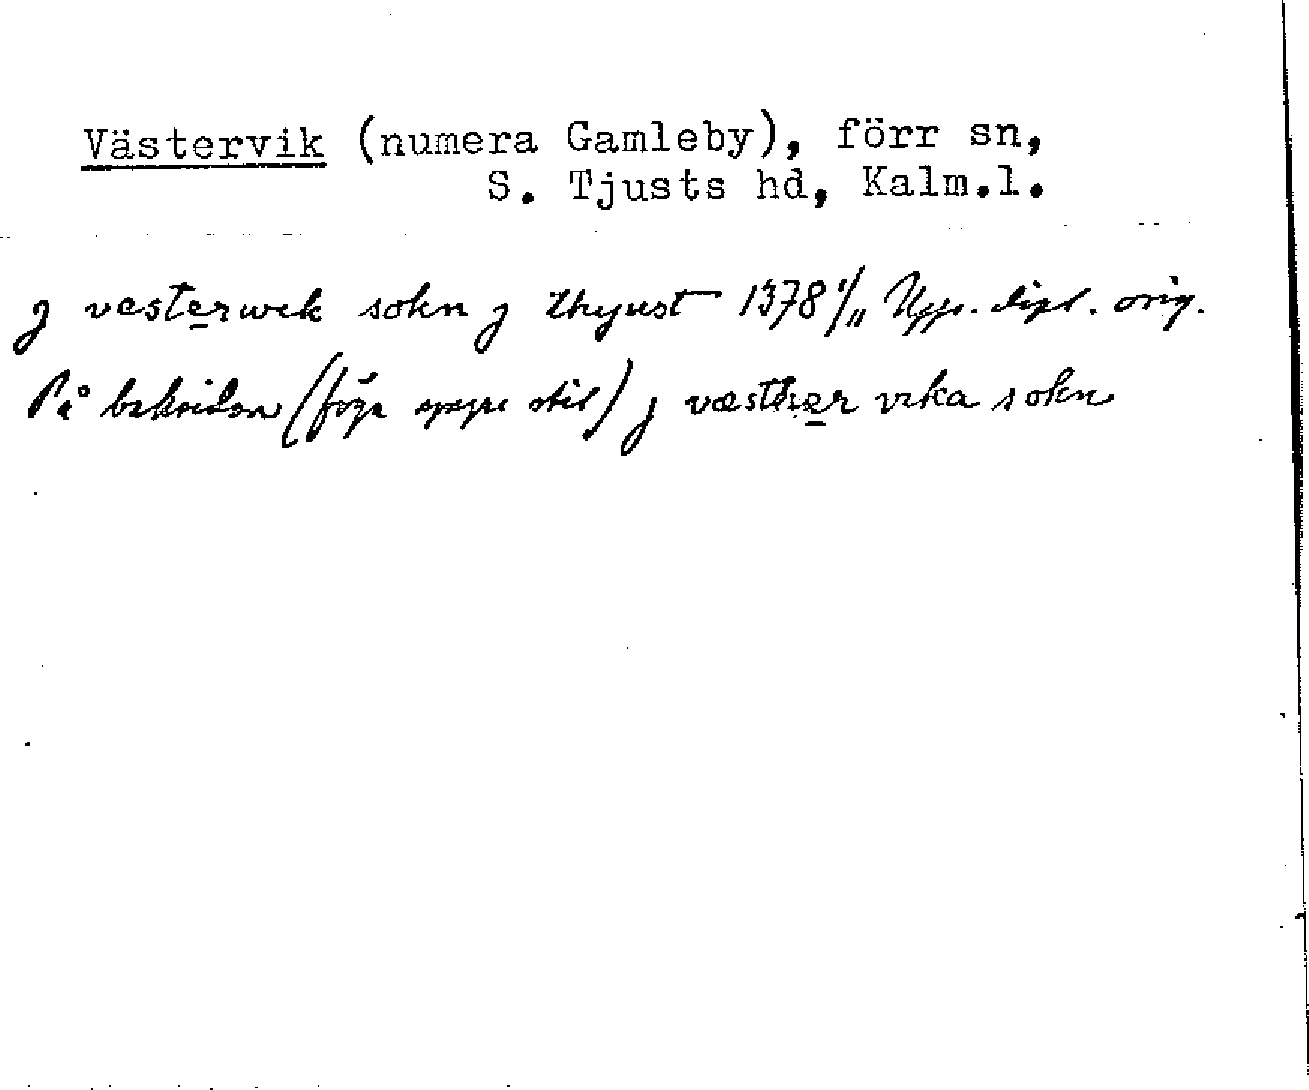 Västervik (numera Gamleby), förr sn,
S. Tjusts hd, Kalm.l.
j vesterwek sokn j thyust 1378 1/11 Upps. dipl. orig.
På baksidan (föga yngre stil) j væsther vika sokn